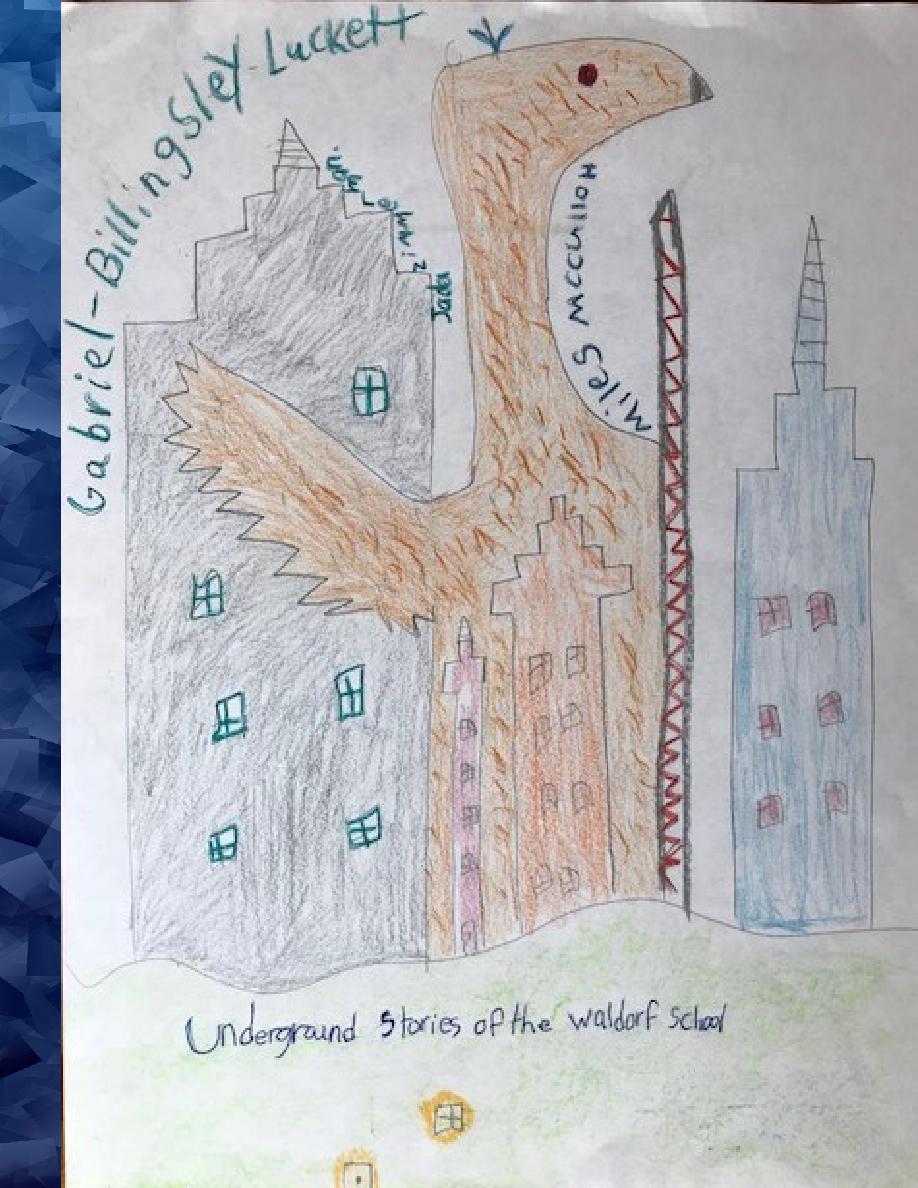 Gabriel-Billingsley-Luckett
Jada
Miles McCulloh
Underground Stories of the waldorf School